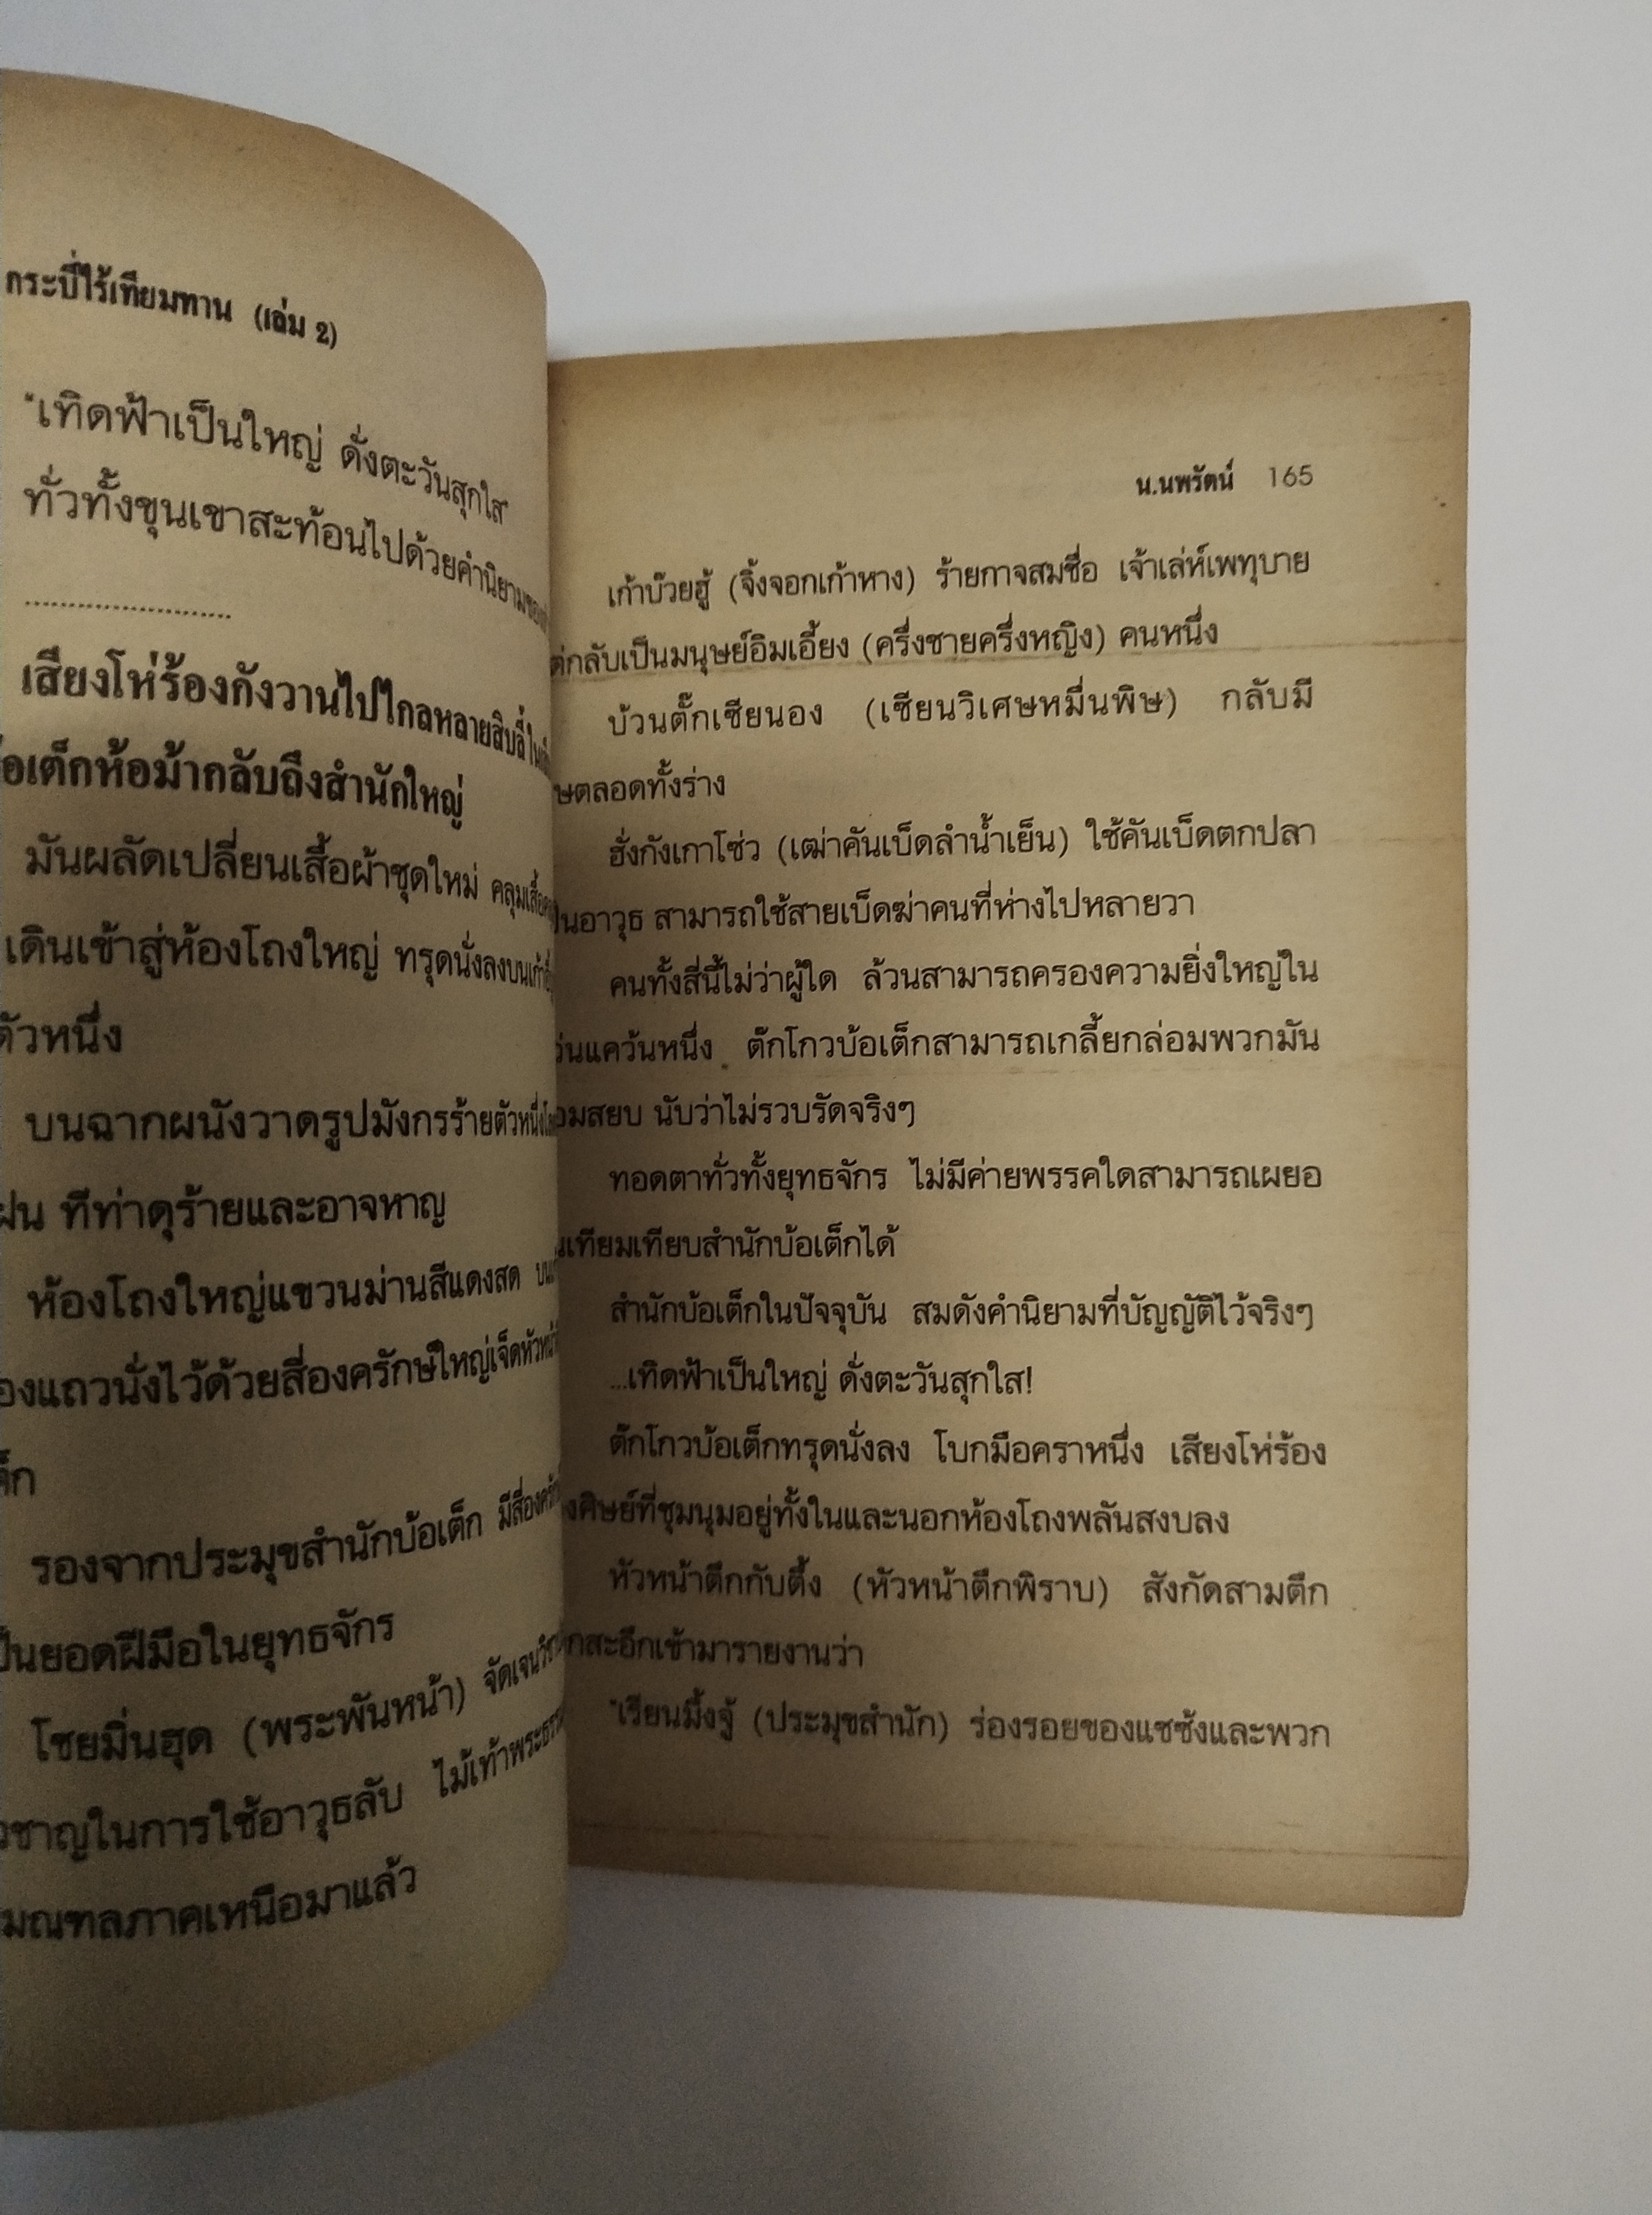 กระบี่ไร้เทียมทาน (เล่ม 2)
"เทิดฟ้าเป็นใหญ่ ดั่งตะวันสุกใส"
ทั่วทั้งขุนเขาสะท้อนไปด้วยคำนิยาม
.............................
เสียงโห่ร้องกังวานไปไกลหลายสิบลี้
ห้อม้ากลับถึงสำนักใหญ่
มันผลัดเปลี่ยนเสื้อผ้าชุดใหม่ คลุมเสื้อ
เดินเข้าสู่ห้องโถงใหญ่ ทรุดนั่งลงบนเก้าอี้
ตัวหนึ่ง
บนฉากผนังวาดรูปมังกรร้ายตัวหนึ่ง
ทีท่าดุร้ายและอาจหาญ
ห้องโถงใหญ่แขวนม่านสีแดงสด
แถวนั่งไว้ด้วยสี่องครักษ์ใหญ่เจ็ดหัวหน้า
รองจากประมุขสำนักบ้อเต็ก มีสี่องครักษ์
ยอดฝีมือในยุทธจักร
โชยมิ่นฮุด (พระพันหน้า) จัดเจน
ในการใช้อาวุธลับ ไม้เท้า
มณฑลภาคเหนือมาแล้ว
น.นพรัตน์ 165
เก้าบ๊วยฮู้ (จิ้งจอกเก้าหาง) ร้ายกาจสมชื่อ เจ้าเล่ห์เพทุบาย
กลับเป็นมนุษย์อิมเอี้ยง (ครึ่งชายครึ่งหญิง) คนหนึ่ง
บ้วนตั๊กเซียนอง (เซียนวิเศษหมื่นพิษ) กลับมี
ตลอดทั้งร่าง
ฮั่งกังเกาโซ่ว (เฒ่าคันเบ็ดลำน้ำเย็น) ใช้คันเบ็ดตกปลา
อาวุธ สามารถใช้สายเบ็ดฆ่าคนที่ห่างไปหลายวา
คนทั้งสี่นี้ไม่ว่าผู้ใด ล้วนสามารถครองความยิ่งใหญ่ใน
แคว้นหนึ่ง ต๊กโกวบ้อเต็กสามารถเกลี้ยกล่อมพวกมัน
นับว่าไม่รวบรัดจริงๆ
ทอดตาทั่วทั้งยุทธจักร ไม่มีค่ายพรรคใดสามารถเผยอ
เทียมเทียบสำนักบ้อเต็กได้
สำนักบ้อเต็กในปัจจุบัน สมดังคำนิยามที่บัญญัติไว้จริงๆ
...เทิดฟ้าเป็นใหญ่ ดั่งตะวันสุกใส!
ต๊กโกวบ้อเต็กทรุดนั่งลง โบกมือคราหนึ่ง เสียงโห่ร้อง
ศิษย์ที่ชุมนุมอยู่ทั้งในและนอกห้องโถงพลันสงบลง
หัวหน้าตึกกับตึ้ง (หัวหน้าตึกพิราบ) สังกัดสามตึก
เข้ามารายงานว่า
"เรียนมึ้งจู้ (ประมุขสำนัก) ร่องรอยของแชซ้งและพวก